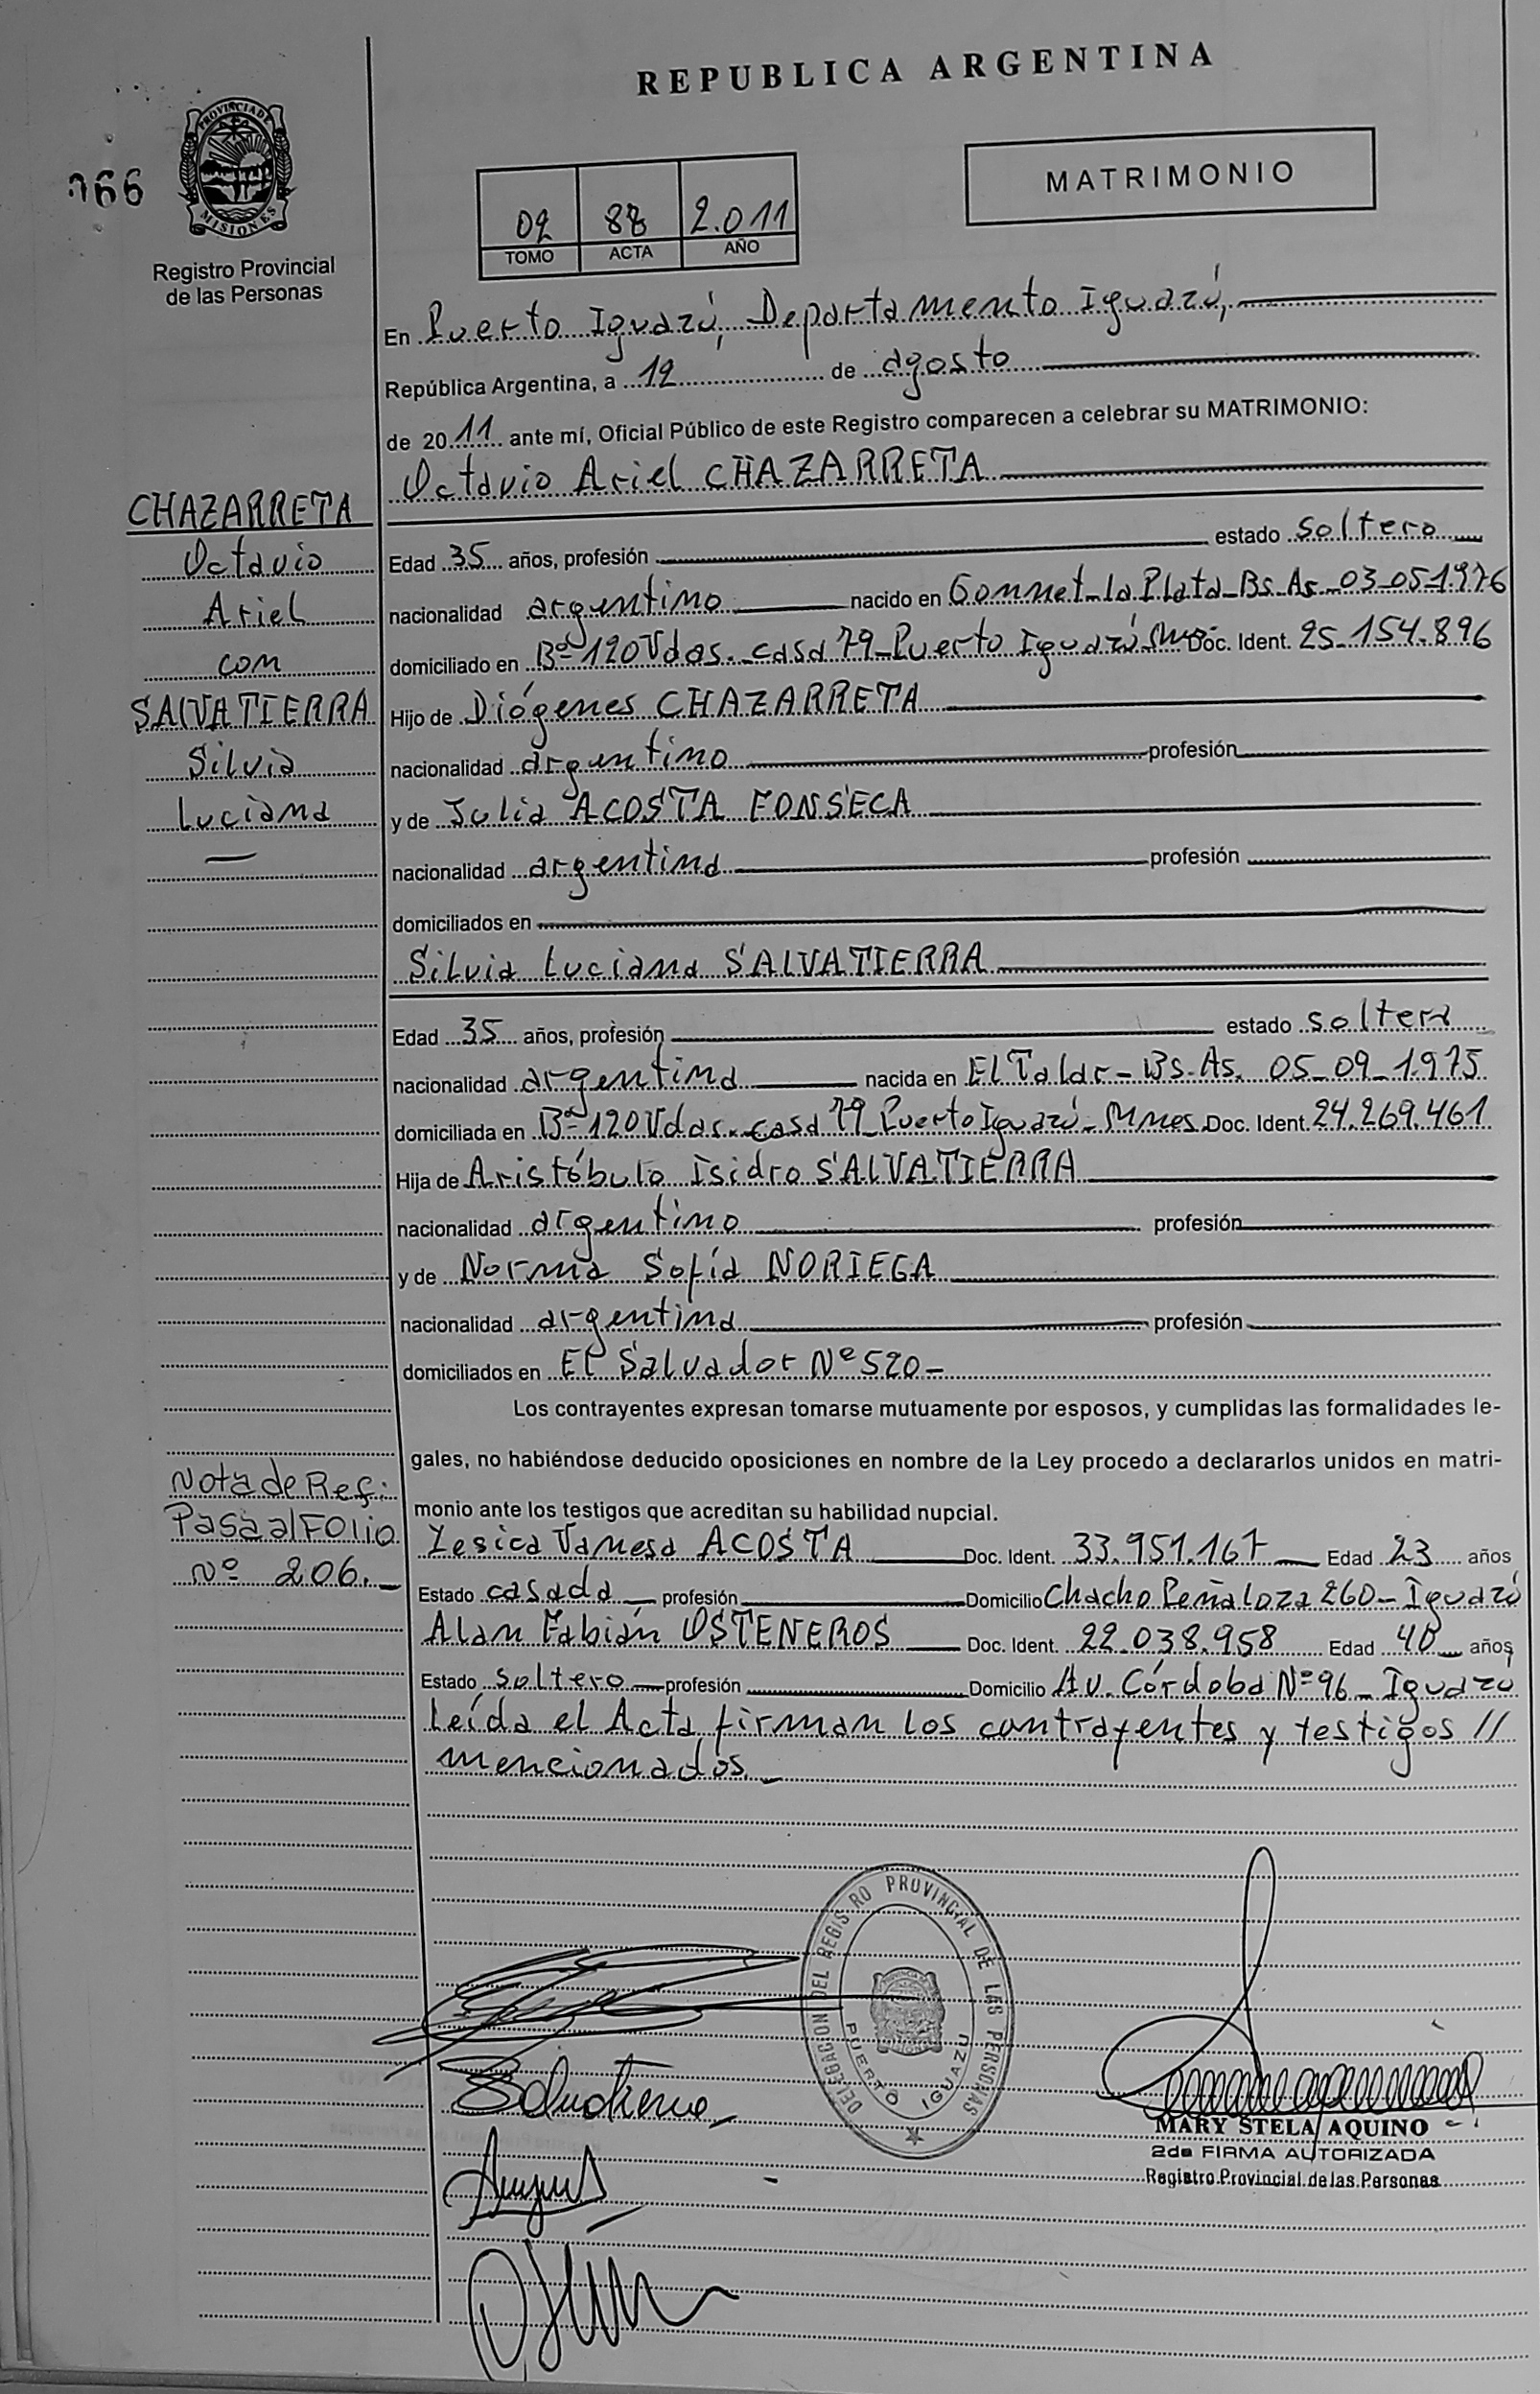 REPUBLICA ARGENTINA
PROVINCIA DE
MISIONES
Registro Provincial
de las Personas
MATRIMONIO
02 88 2.011
TOMO ACTA AÑO
En Puerto Iguazú, Departamento Iguazú,
República Argentina, a 12 de agosto
de 2011 ante mí, Oficial Público de este Registro comparecen a celebrar su MATRIMONIO:
Octavio Ariel CHAZARRETA
CHAZARRETA
Octavio
Ariel
con
SALVATIERRA
Silvia
Luciana
Edad 35 años, profesión estado soltero
nacionalidad argentino nacido en Gonnet-la Plata-Bs.As-03-05-1.976
domiciliado en Bº 120 Vdas.-casa 79-Puerto Iguazú Doc. Ident. 25.154.896
Hijo de Diógenes CHAZARRETA
nacionalidad argentino profesión
y de Julia ACOSTA FONSECA
nacionalidad argentina profesión
domiciliados en
Silvia Luciana SALVATIERRA
Edad 35 años, profesión estado soltera
nacionalidad argentina nacida en El Talar-Bs.As. 05-09-1.975
domiciliada en Bº 120 Vdas.-casa 79-Puerto Iguazú-Mnes. Doc. Ident. 24.269.461
Hija de Aristóbulo Isidro SALVATIERRA
nacionalidad argentino profesión
y de Norma Sofía NORIEGA
nacionalidad argentina profesión
domiciliados en El Salvador Nº 520-
Los contrayentes expresan tomarse mutuamente por esposos, y cumplidas las formalidades le-
gales, no habiéndose deducido oposiciones en nombre de la Ley procedo a declararlos unidos en matri-
monio ante los testigos que acreditan su habilidad nupcial.
Nota de Ref:
Pasa al Folio
Nº 206.-
Yesica Vanesa ACOSTA Doc. Ident. 33.951.167 Edad 23 años
Estado casada profesión Domicilio Chacho Peñaloza 260-Iguazú
Alan Fabián OSTENEROS Doc. Ident. 22.038.958 Edad 40 años
Estado soltero profesión Domicilio Av. Córdoba Nº 96-Iguazú
Leída el Acta, firman los contrayentes y testigos //
mencionados.-
DELEGACION DEL REGISTRO PROVINCIAL DE LAS PERSONAS
PUERTO IGUAZU
MARY STELA AQUINO
2da FIRMA AUTORIZADA
Registro Provincial de las Personas